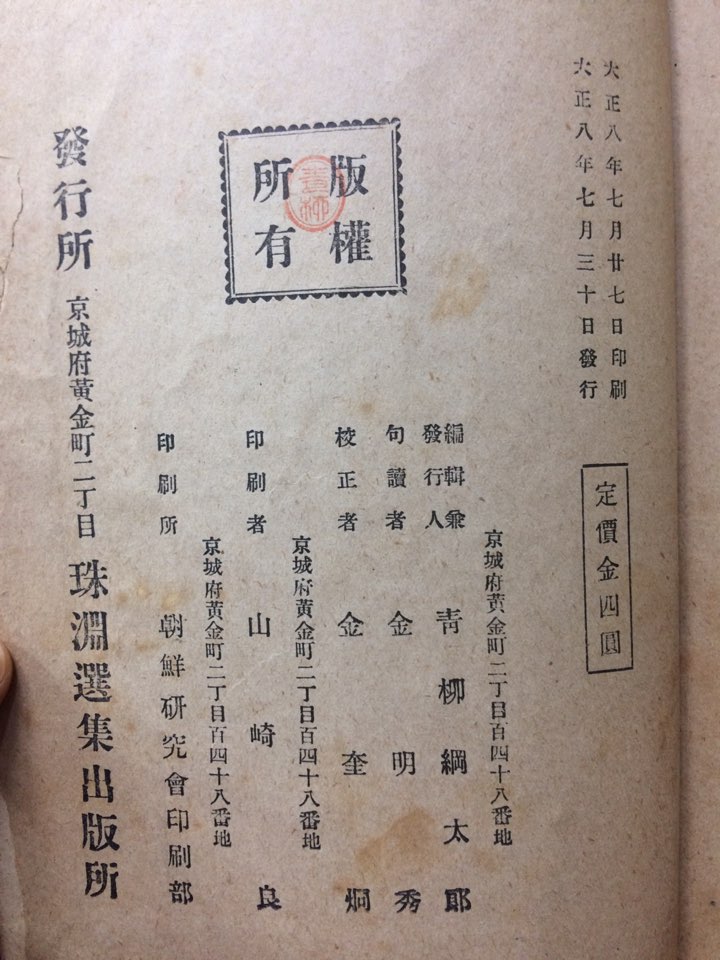 大正八年七月廿七日印刷
大正八年七月三十日發行
定價金四圓
版權
所有
青柳
京城府黃金町二丁目百四十八番地
編輯兼
發行人 青柳綱太郎
句讀者 金明秀
校正者 金奎炯
京城府黃金町二丁目百四十八番地
印刷者 山崎良
京城府黃金町二丁目百四十八番地
印刷所 朝鮮研究會印刷部
發行所 京城府黃金町二丁目 珠淵選集出版所